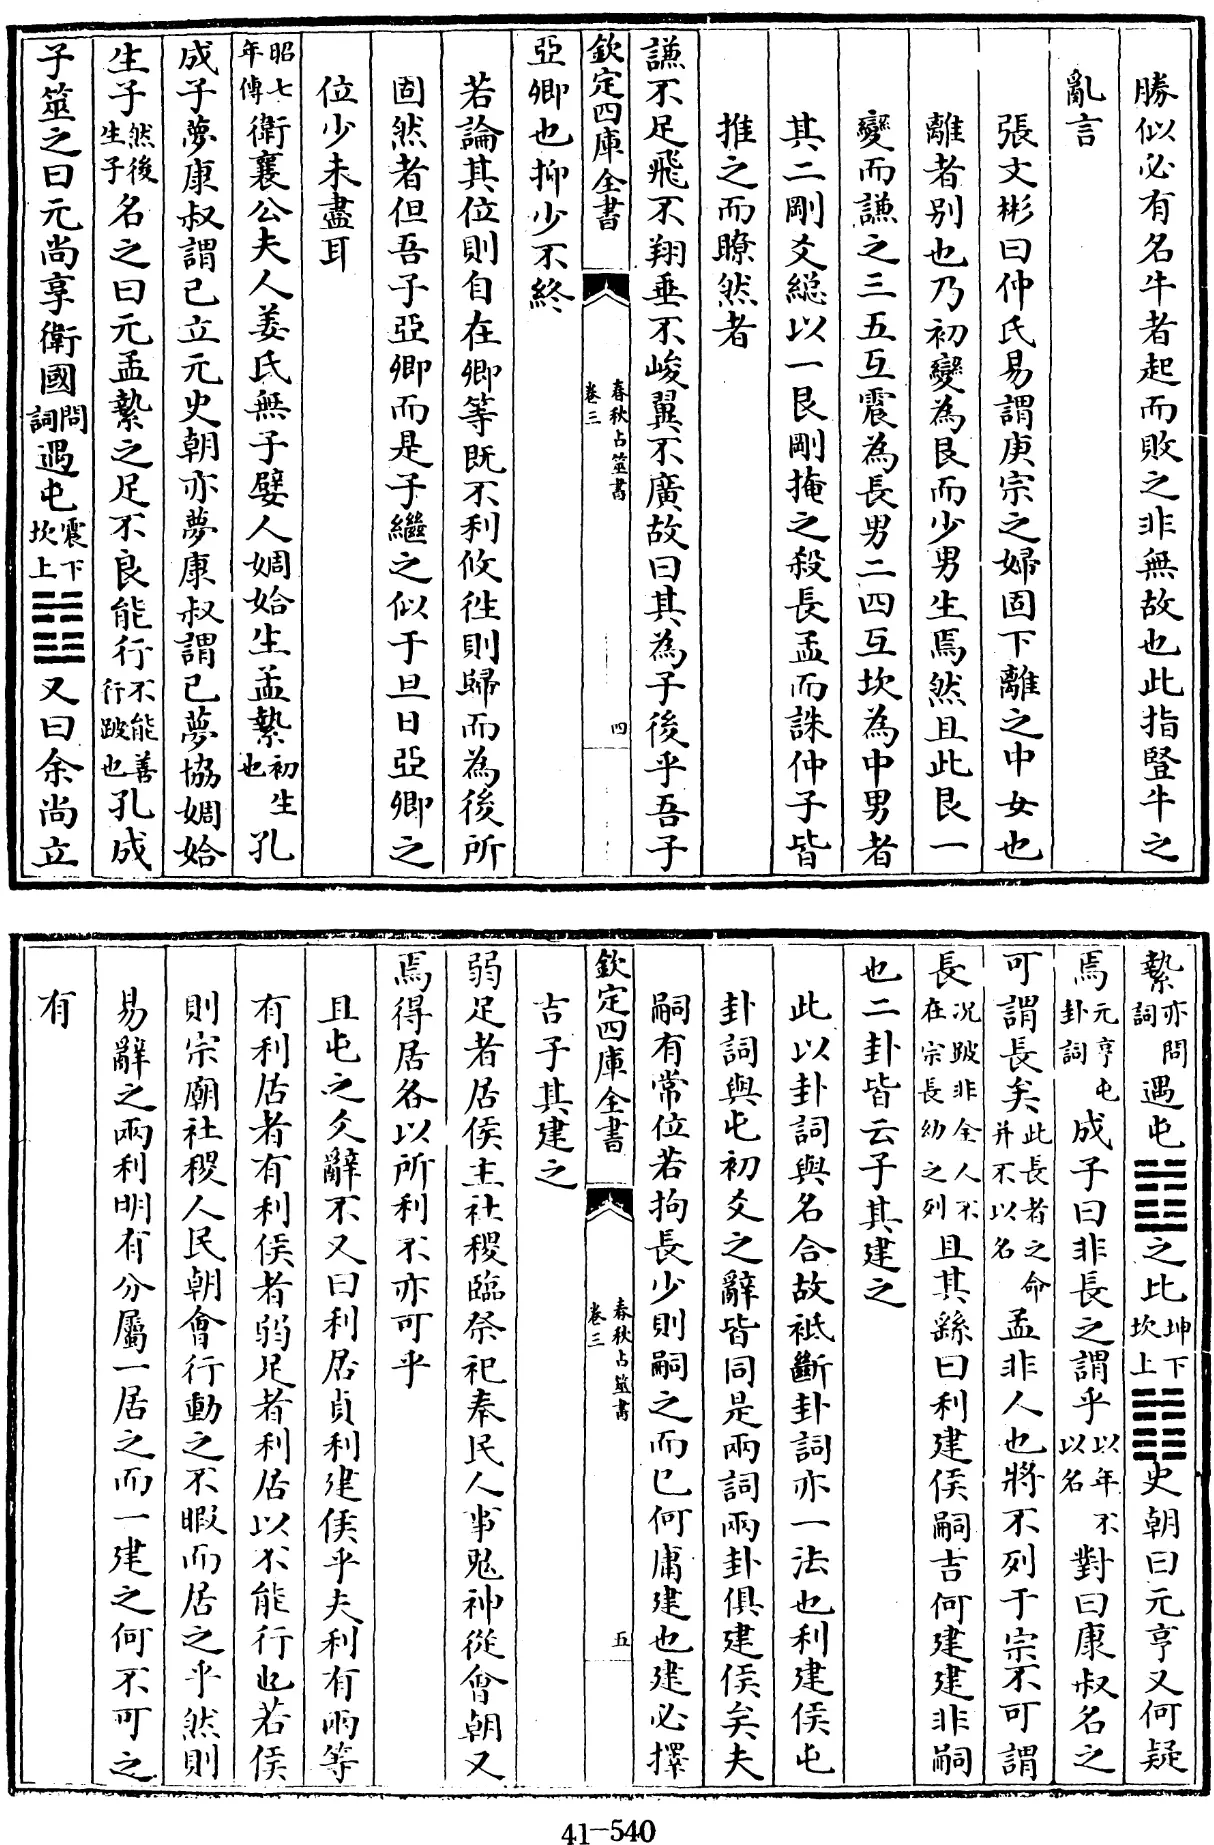 勝似必有名牛者起而敗之非無故也此指豎牛之
亂言
張文彬曰仲氏易謂庚宗之婦固下離之中女也
離者别也乃初變為艮而少男生焉然且此艮一
變而謙之三五互震為長男二四互坎為中男者
其二剛爻總以一艮剛掩之殺長孟而誅仲子皆
推之而瞭然者
謙不足飛不翔垂不峻翼不廣故曰其為子後乎吾子
欽定四庫全書
春秋占筮書
卷三
四
亞卿也抑少不終
若論其位則自在卿等既不利攸徃則歸而為後所
固然者但吾子亞卿而是子繼之似于旦日亞卿之
位少未盡耳
昭七年傳衛襄公夫人姜氏無子嬖人婤姶生孟縶初生也孔
成子夢康叔謂己立元史朝亦夢康叔謂己夢協婤姶
生子然後生子名之曰元孟縶之足不良能行不能善行跛也孔成
子筮之曰元尚享衛國問詞遇屯震下坎上䷂又曰余尚立
縶亦問詞遇屯䷂之比坤下坎上䷇史朝曰元亨又何疑
焉元亨屯卦詞成子曰非長之謂乎以年不以名對曰康叔名之
可謂長矣此長者之命并不以名孟非人也將不列于宗不可謂
長况跛非全人不在宗長幼之列且其繇曰利建侯嗣吉何建建非嗣
也二卦皆云子其建之
此以卦詞與名合故祗斷卦詞亦一法也利建侯屯
卦詞與屯初爻之辭皆同是兩詞兩卦俱建侯矣夫
嗣有常位若拘長少則嗣之而已何庸建也建必擇
欽定四庫全書
春秋占筮書
卷三
五
吉子其建之
弱足者居侯主社稷臨祭祀奉民人事鬼神從會朝又
焉得居各以所利不亦可乎
且屯之爻辭不又曰利居貞利建侯乎夫利有兩等
有利居者有利侯者弱足者利居以不能行也若侯
則宗廟社稷人民朝會行動之不暇而居之乎然則
易辭之兩利明有分屬一居之而一建之何不可之
有
41-540